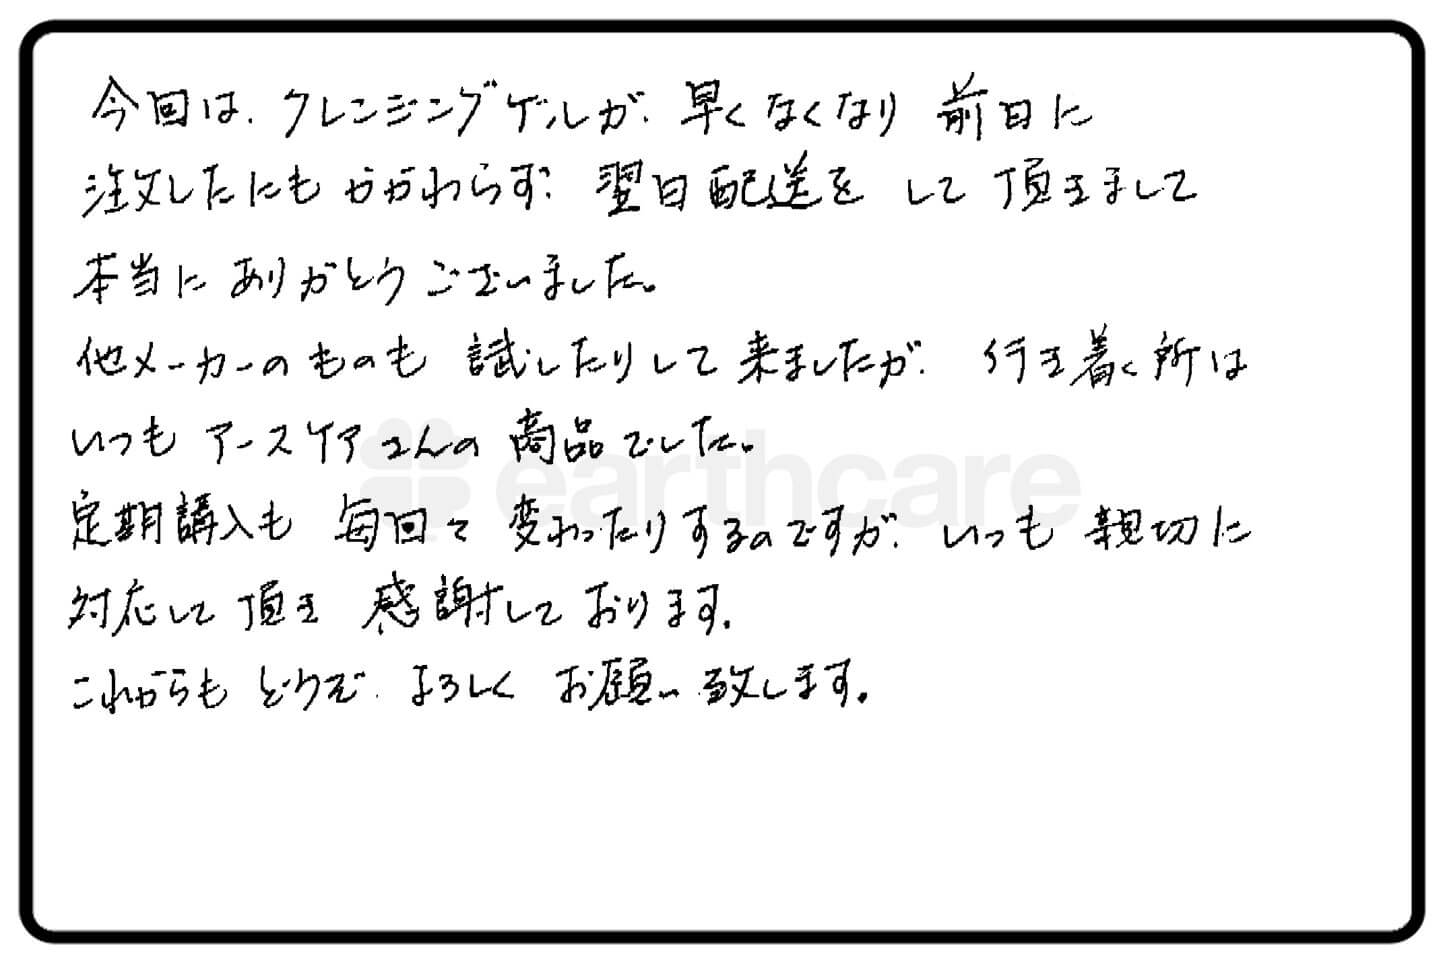 今回は、クレンジングゲルが、早くなくなり 前日に
注文したにもかかわらず、翌日配送を して 頂きまして
本当に ありがとう ございました。
他メーカーのものも 試したりして来ましたが、 行き着く所は
いつも アースケアさんの 商品でした。
earthcare
定期購入も 毎回々 変わったりするのですが、いつも 親切に
対応して 頂き 感謝しております。
これからも どうぞ、よろしく お願い致します。